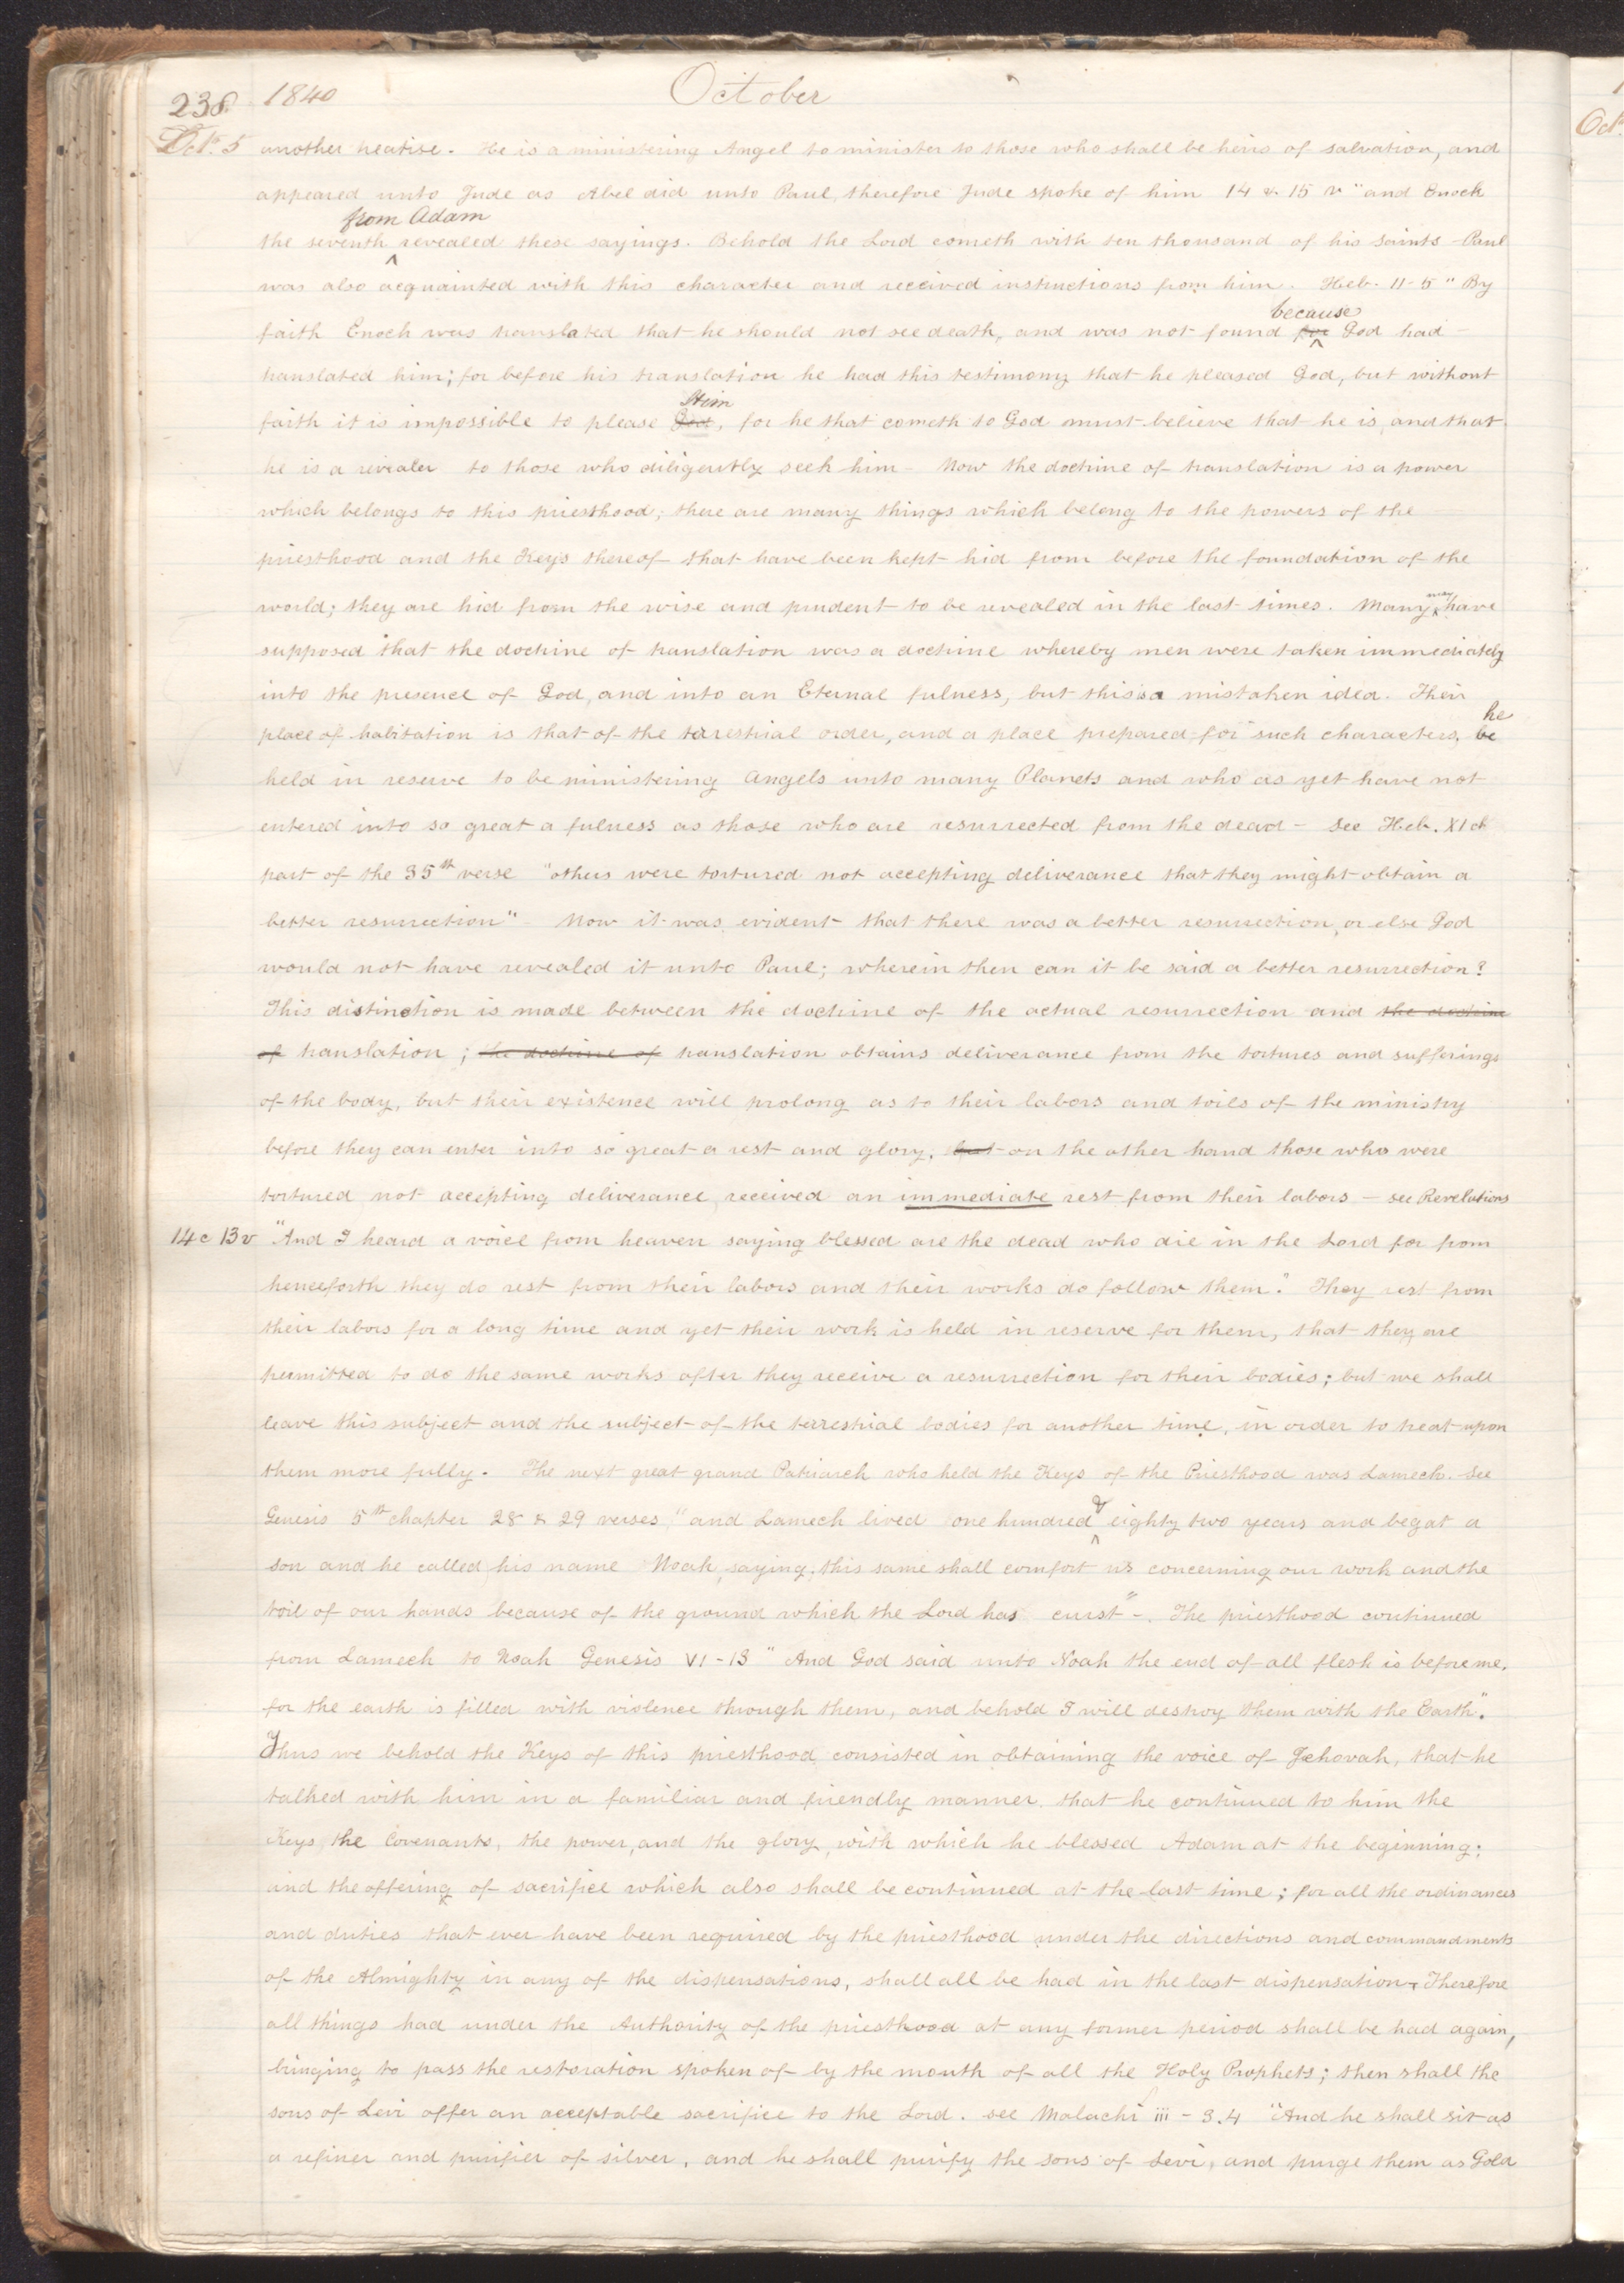 238. 1840 October
Oct. 5 another treatise. He is a ministering Angel to minister to those who shall be heirs of salvation, and
appeared unto Jude as Abel did unto Paul, therefore Jude spoke of him 14 & 15 v "and Enoch
from Adam
the seventh ^ revealed these sayings. Behold the Lord cometh with ten thousand of his saints - Paul
was also acquainted with this character and received instructions from him. Heb. 11-5 " By
because
faith Enoch was translated that he should not see death, and was not found for ^ God had
translated him; for before his translation he had this testimony that he pleased God, but without
Him
faith it is impossible to please God, for he that cometh to God must believe that he is, and that
he is a revealer to those who diligently seek him - Now the doctrine of translation is a power
which belongs to this priesthood; there are many things which belong to the powers of the
priesthood and the Keys thereof that have been kept hid from before the foundation of the
world; they are hid from the wise and prudent to be revealed in the last times. Many may have
supposed that the doctrine of translation was a doctrine whereby men were taken immediately
into the presence of God, and into an Eternal fulness, but this is a mistaken idea. Their
he
place of habitation is that of the terrestrial order, and a place prepared for such characters, be
held in reserve to be ministering Angels unto many Planets and who as yet have not
entered into so great a fulness as those who are resurrected from the dead - see Heb. XI ch
part of the 35th verse "others were tortured not accepting deliverance that they might obtain a
better resurrection" - Now it was evident that there was a better resurrection, or else God
would not have revealed it unto Paul; wherein then can it be said a better resurrection?
This distinction is made between the doctrine of the actual resurrection and the doctrine
of translation; the doctrine of translation obtains deliverance from the tortures and sufferings
of the body, but their existence will prolong as to their labors and toils of the ministry
before they can enter into so great a rest and glory, but on the other hand those who were
tortured not accepting deliverance received an immediate rest from their labors - see Revelations
14c 13v "And I heard a voice from heaven saying blessed are the dead who die in the Lord for from
henceforth they do rest from their labors and their works do follow them." They rest from
their labors for a long time and yet their work is held in reserve for them, that they are
permitted to do the same works after they receive a resurrection for their bodies; but we shall
leave this subject and the subject of the terrestrial bodies for another time, in order to treat upon
them more fully. The next great grand Patriarch who held the Keys of the Priesthood was Lamech. See
Genesis 5th chapter 28 & 29 verses, "and Lamech lived one hundred ^ & eighty two years and begat a
son and he called his name Noah, saying, this same shall comfort us concerning our work and the
toil of our hands because of the ground which the Lord has curst" -. The priesthood continued
from Lamech to Noah Genesis VI-13 "And God said unto Noah the end of all flesh is before me,
for the earth is filled with violence through them, and behold I will destroy them with the Earth."
Thus we behold the Keys of this priesthood consisted in obtaining the voice of Jehovah, that he
talked with him in a familiar and friendly manner, that he continued to him the
Keys, the Covenants, the power, and the glory, with which he blessed Adam at the beginning;
and the offering ^ of sacrifice which also shall be continued at the last time; for all the ordinances
and duties that ever have been required by the priesthood under the directions and commandments
of the Almighty ^ in any of the dispensations, shall all be had in the last dispensation. Therefore
all things had under the Authority of the priesthood at any former period shall be had again,
bringing to pass the restoration spoken of by the mouth of all the Holy Prophets; then shall the
sons of Levi offer an acceptable sacrifice to the Lord. see Malachi iii - 3.4 "And he shall sit as
a refiner and purifier of silver, and he shall purify the sons of Levi, and purge them as Gold
Oct.